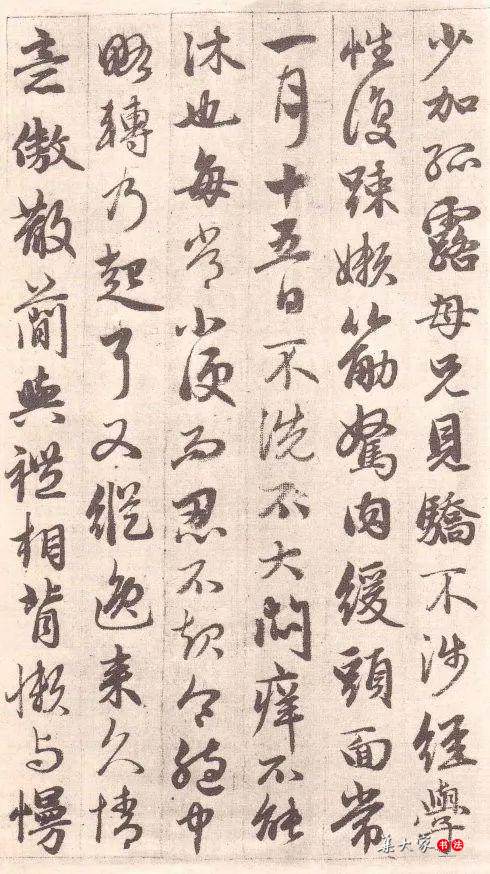 少加孤露母兄見驕不涉經學
性復踈嬾筋駑肉緩頭面常
一月十五日不洗不大悶痒不能
沐也每常小便而忍不起令胞中
略轉乃起耳又縱逸来久情
意傲散簡與禮相背懶与慢
集大家书法